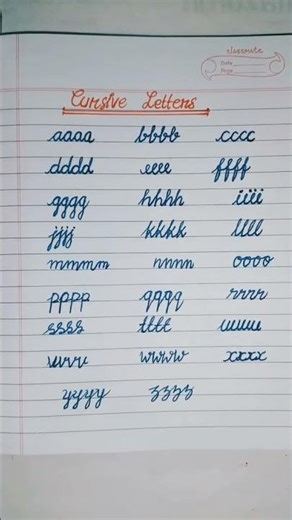 classmate
Date
Page
Cursive Letters
aaaa bbbb cccc
dddd eeee ffff
gggg hhhh iiii
jjjj kkkk llll
mmmm nnnn oooo
pppp qqqq rrrr
ssss tttt uuuu
vvvv wwww xxxx
yyyy zzzz